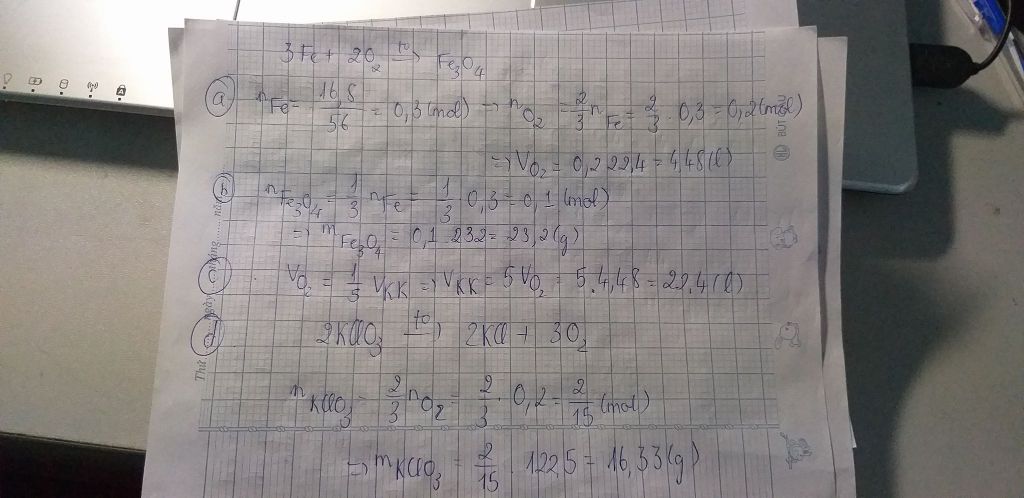 3Fe + 2O₂ →(t⁰) Fe₃O₄
ⓐ n Fe = 16,8/56 = 0,3 (mol) → n O₂ = 2/3 n Fe = 2/3 . 0,3 = 0,2 (mol)
=> V O₂ = 0,2 22,4 = 4,48 (l)
ⓑ n Fe₃O₄ = 1/3 n Fe = 1/3 0,3 = 0,1 (mol)
=> m Fe₃O₄ = 0,1 232 = 23,2 (g)
ⓒ V O₂ = 1/5 V KK => V KK = 5 V O₂ = 5 . 4,48 = 22,4 (l)
ⓓ 2KClO₃ →(t⁰) 2KCl + 3O₂
n KClO₃ = 2/3 n O₂ = 2/3 . 0,2 = 2/15 (mol)
=> m KClO₃ = 2/15 . 122,5 = 16,33 (g)
Thứ